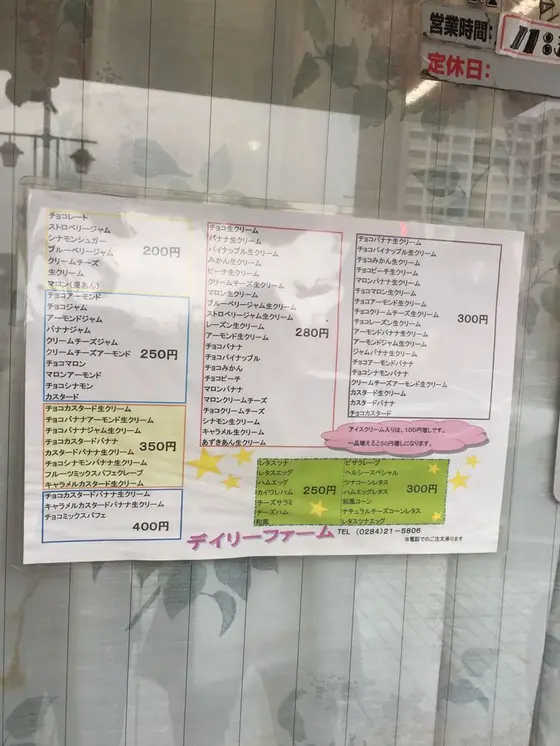 営業時間:
定休日:
チョコレート
ストロベリージャム
シナモンシュガー
ブルーベリージャム
クリームチーズ
生クリーム
マロン(栗あん)
200円
チョコアーモンド
チョコジャム
アーモンドジャム
バナナジャム
クリームチーズジャム
クリームチーズアーモンド
チョコマロン
マロンアーモンド
チョコシナモン
カスタード
250円
チョコカスタード生クリーム
チョコバナナアーモンド生クリーム
チョコバナナジャム生クリーム
チョコカスタードバナナ
カスタードバナナ生クリーム
チョコシナモンバナナ生クリーム
フルーツミックスパフェクレープ
キャラメルカスタード生クリーム
350円
チョコカスタードバナナ生クリーム
キャラメルカスタードバナナ生クリーム
チョコミックスパフェ
400円
チョコ生クリーム
バナナ生クリーム
パイナップル生クリーム
みかん生クリーム
ピーチ生クリーム
クリームチーズ生クリーム
マロン生クリーム
ブルーベリージャム生クリーム
ストロベリージャム生クリーム
レーズン生クリーム
アーモンド生クリーム
チョコバナナ
チョコパイナップル
チョコみかん
チョコピーチ
マロンバナナ
マロンクリームチーズ
チョコクリームチーズ
シナモン生クリーム
キャラメル生クリーム
あずきあん生クリーム
280円
チョコバナナ生クリーム
チョコパイナップル生クリーム
チョコみかん生クリーム
チョコピーチ生クリーム
マロンバナナ生クリーム
チョコマロン生クリーム
チョコアーモンド生クリーム
チョコクリームチーズ生クリーム
チョコレーズン生クリーム
アーモンドバナナ生クリーム
アーモンドジャム生クリーム
ジャムバナナ生クリーム
チョコアーモンドバナナ
チョコシナモンバナナ
クリームチーズアーモンド生クリーム
カスタード生クリーム
カスタードバナナ
チョコカスタード
300円
アイスクリーム入りは、100円増しです。
一品増えると50円増しになります。
レタスツナ
レタスエッグ
ハムエッグ
カイワレハム
チーズサラミ
チーズハム
和風
250円
ピザクレープ
ヘルシースペシャル
ツナコーンレタス
ハムエッグレタス
和風コーン
ナチュラルチーズコーンレタス
レタスツナエッグ
300円
デイリーファーム
TEL (0284)21-5806
※電話でのご注文承ります